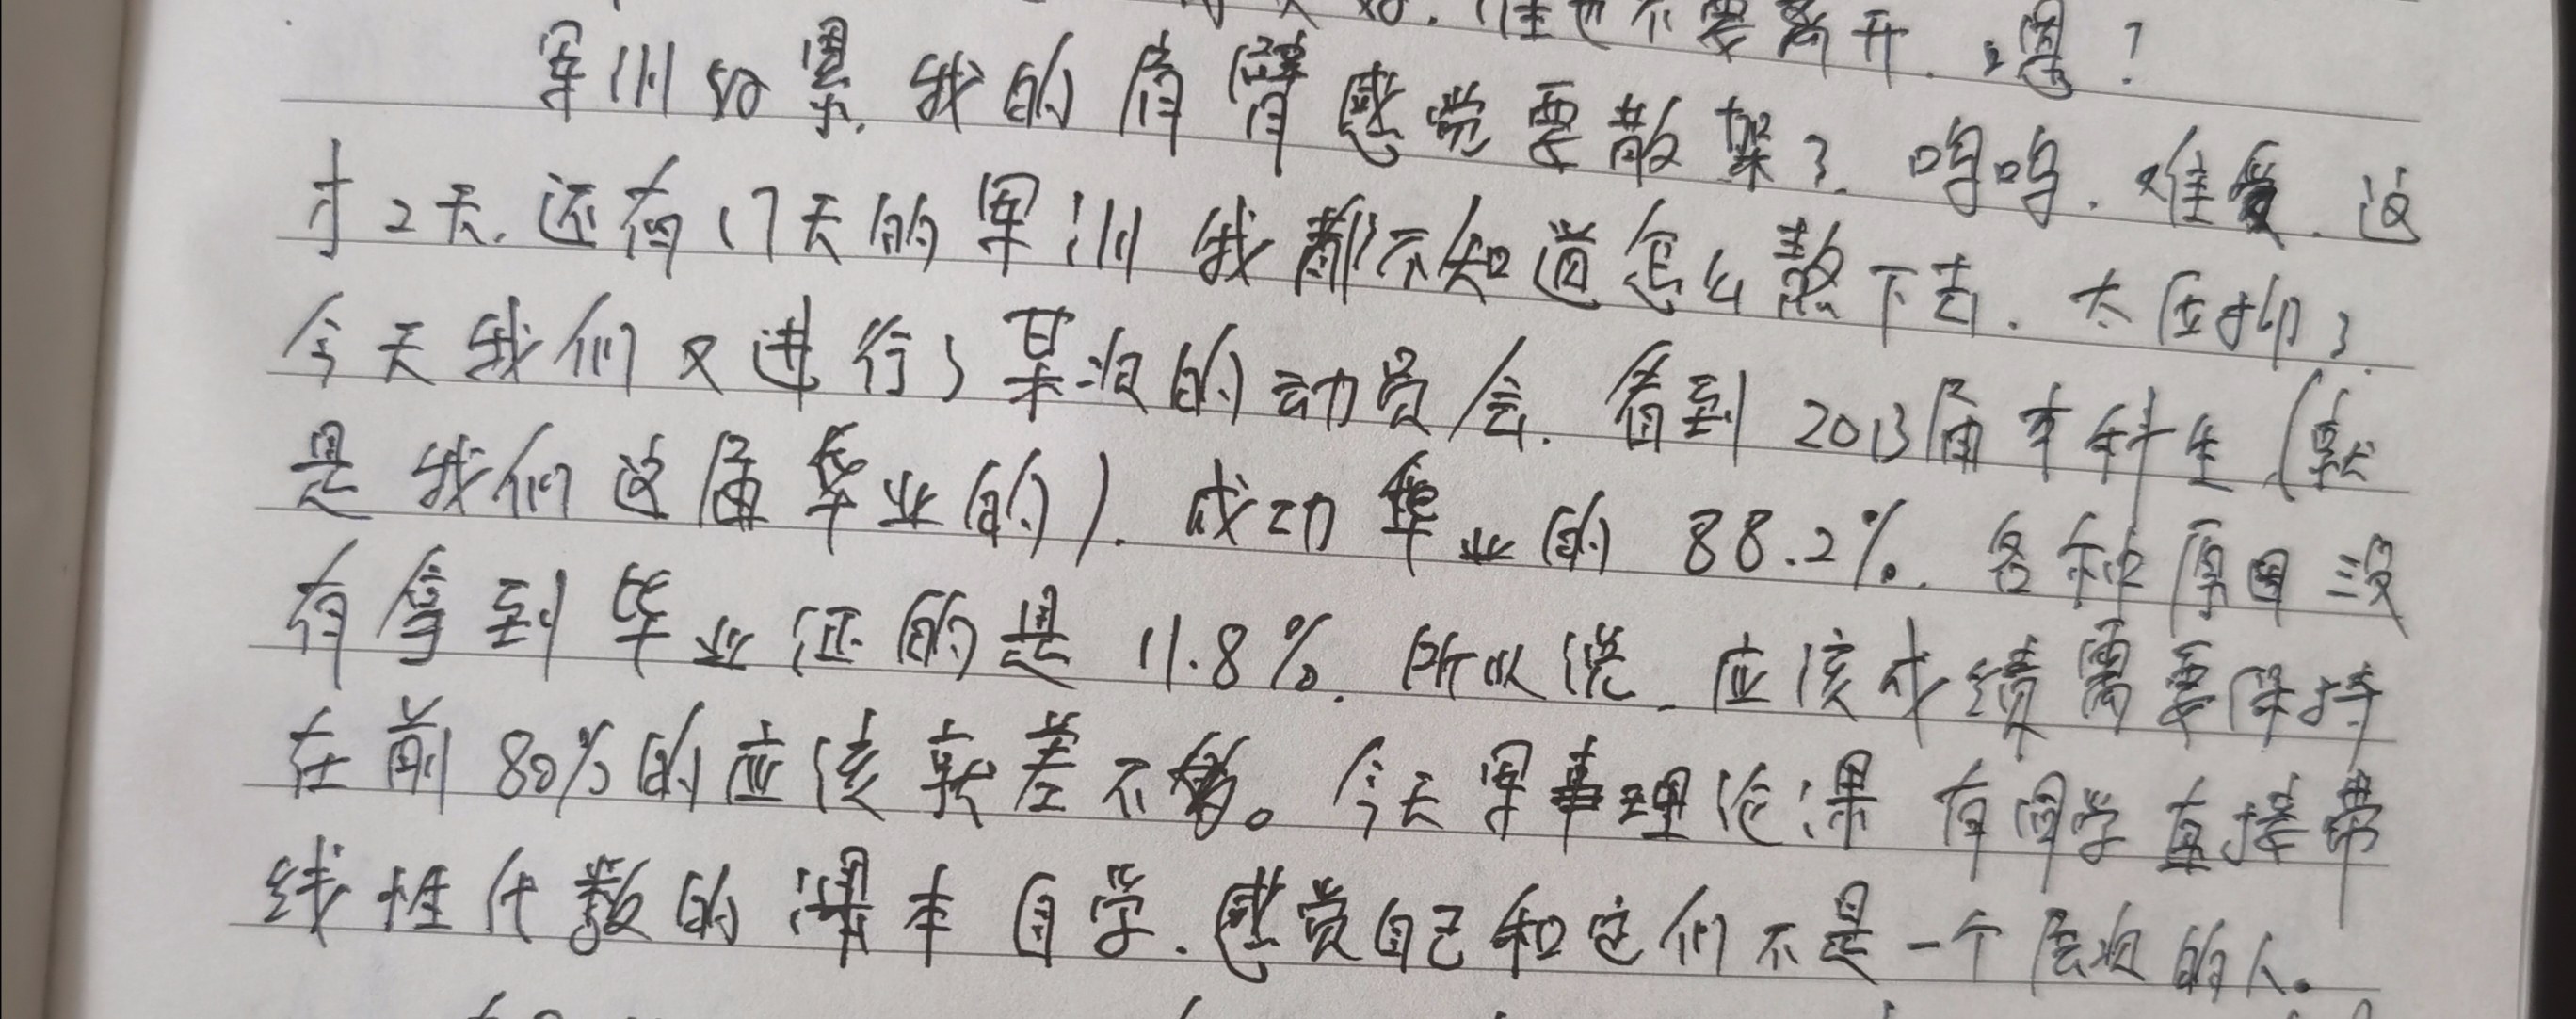 谁也不要离开.嗯?
军训好累.我的肩臂感觉要散架了.呜呜.难受.这
才2天.还有17天的军训我都不知道怎么熬下去.太压抑了.
今天我们又进行了某次的动员会.看到2013届本科生(就
是我们这届毕业的).成功毕业的88.2%.各种原因没
有拿到毕业证的是11.8%.所以说.应该成绩需要保持
在前80%的应该就差不多。今天军事理论课有同学直接带
线性代数的课本自学.感觉自己和它们不是一个层次的人。